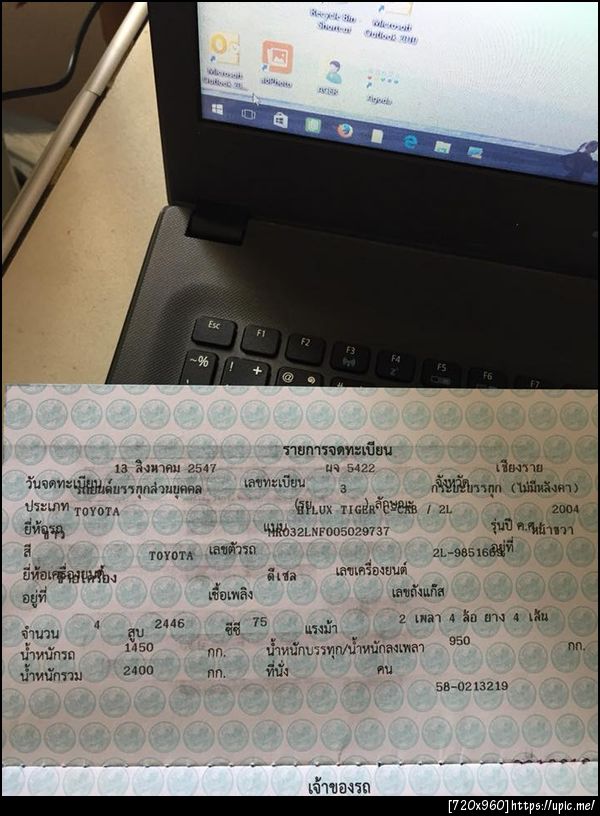 Recycle Bin - Shortcut
Microsoft Outlook 2010
Microsoft Outlook 20...
ACER
Agoda
Esc F1 F2 F3 F4 F5 F6 F7
~% ! + @ ๑ #
รายการจดทะเบียน
วันจดทะเบียน 13 สิงหาคม 2547 เลขทะเบียน ผจ 5422 จังหวัด เชียงราย
ประเภท รถยนต์บรรทุกส่วนบุคคล (รย. 3 ) ลักษณะ กระบะบรรทุก (ไม่มีหลังคา)
ยี่ห้อรถ TOYOTA แบบ HILUX TIGER C-CAB / 2L รุ่นปี ค.ศ. 2004
สี ขาว เลขตัวรถ MR032LNF005029737 อยู่ที่ หน้าขวา
ยี่ห้อเครื่องยนต์ TOYOTA เลขเครื่องยนต์ 2L-9851683
อยู่ที่ ซ้ายเครื่อง เชื้อเพลิง ดีเซล เลขถังแก๊ส
จำนวน 4 สูบ 2446 ซีซี 75 แรงม้า 2 เพลา 4 ล้อ ยาง 4 เส้น
น้ำหนักรถ 1450 กก. น้ำหนักบรรทุก/น้ำหนักลงเพลา 950 กก.
น้ำหนักรวม 2400 กก. ที่นั่ง คน
58-0213219
เจ้าของรถ
[720x960] https://upic.me/